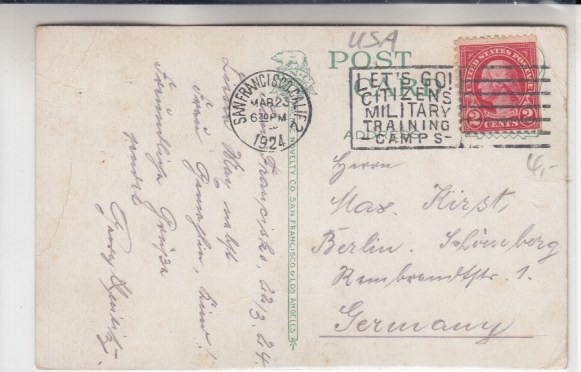 USA
POST
CARD
ADDRESS
SAN FRANCISCO, CALIF. 2
MAR 23
6 30 PM
1924
LET'S GO!
CITIZENS
MILITARY
TRAINING
CAMPS
UNITED STATES POSTAGE
2 CENTS 2
NOVELTY CO. SAN FRANCISCO & LOS ANGELES
4,-
San Francisko, 22/3. 24.
Lieber Max nebst
Frau Gemahlin, Kind!
Freundliche Grüße
sendet
Herrn
Max. Kirst,
Berlin. Schöneberg
Rembrandtstr. 1.
Germany